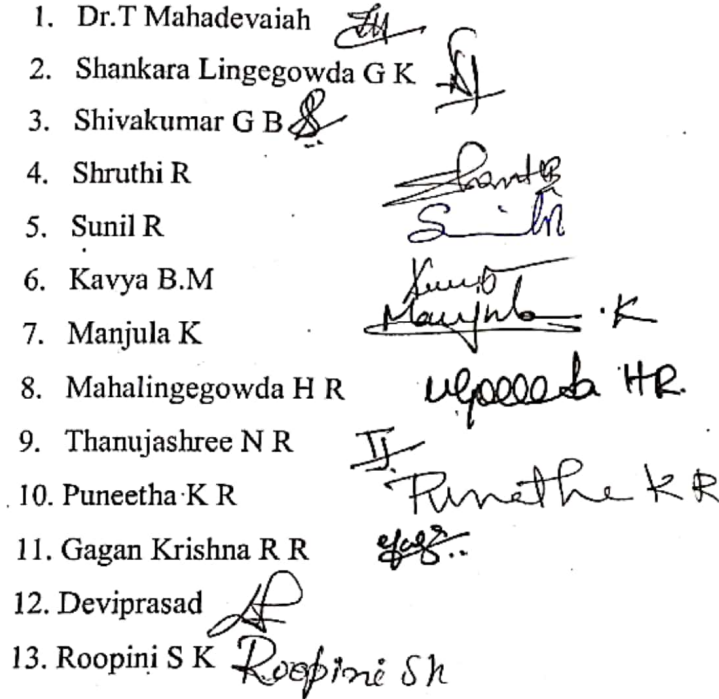 1. Dr.T Mahadevaiah
2. Shankara Lingegowda G K
3. Shivakumar G B
4. Shruthi R
5. Sunil R Sunil R
6. Kavya B.M
7. Manjula K Manjula .K
8. Mahalingegowda H R HR.
9. Thanujashree N R
10. Puneetha K R Punetha K R
11. Gagan Krishna R R
12. Deviprasad
13. Roopini S K Roopini Sk